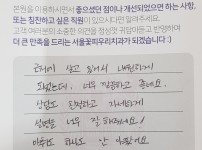 본원을 이용하시면서 좋으셨던 점이나 개선되었으면 하는 사항,
또는 칭찬하고 싶은 직원이 있으시다면 알려주세요.
고객 여러분의 소중한 의견을 정성껏 귀담아듣고 반영하여
더 큰 만족을 드리는 서울꽃피우리치과가 되겠습니다 :)
근처에 살고 있어서 내원하게
되었는데, 너무 깔끔하고 좋네요.
상담도 친절하고 자세하게
설명을 너무 잘 해주셔서!
아주 안 아팠어요